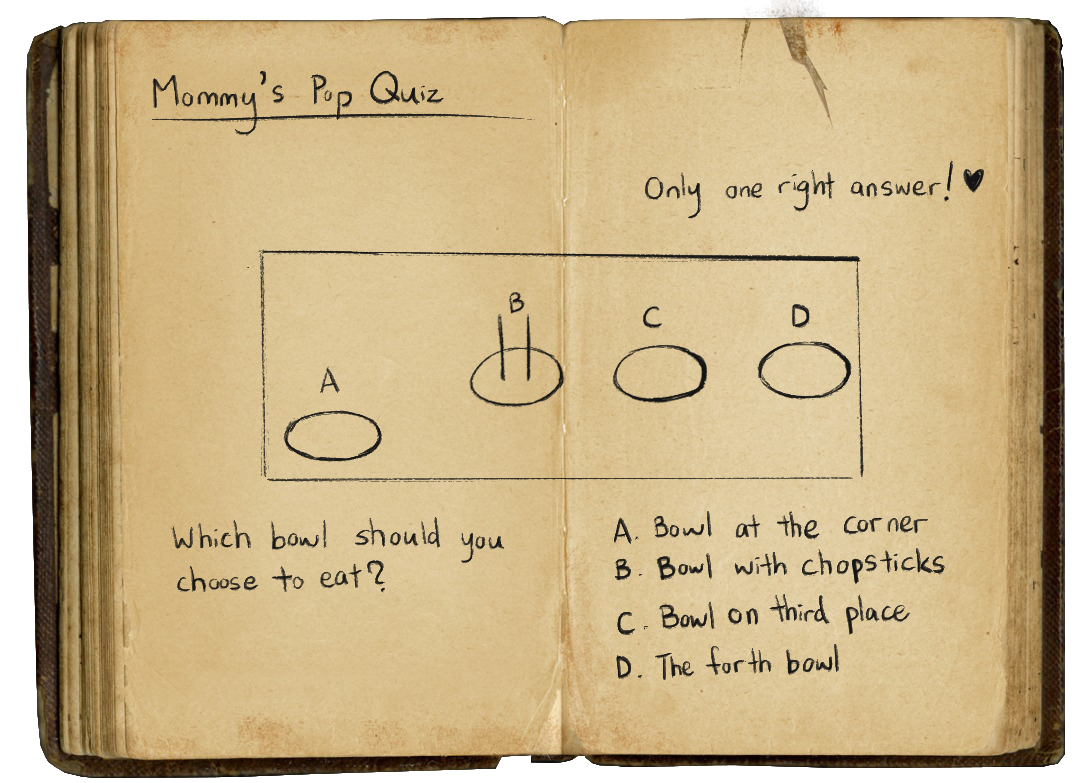 Mommy's Pop Quiz
Only one right answer! ♥
A
B
C
D
Which bowl should you
choose to eat?
A. Bowl at the corner
B. Bowl with chopsticks
C. Bowl on third place
D. The forth bowl